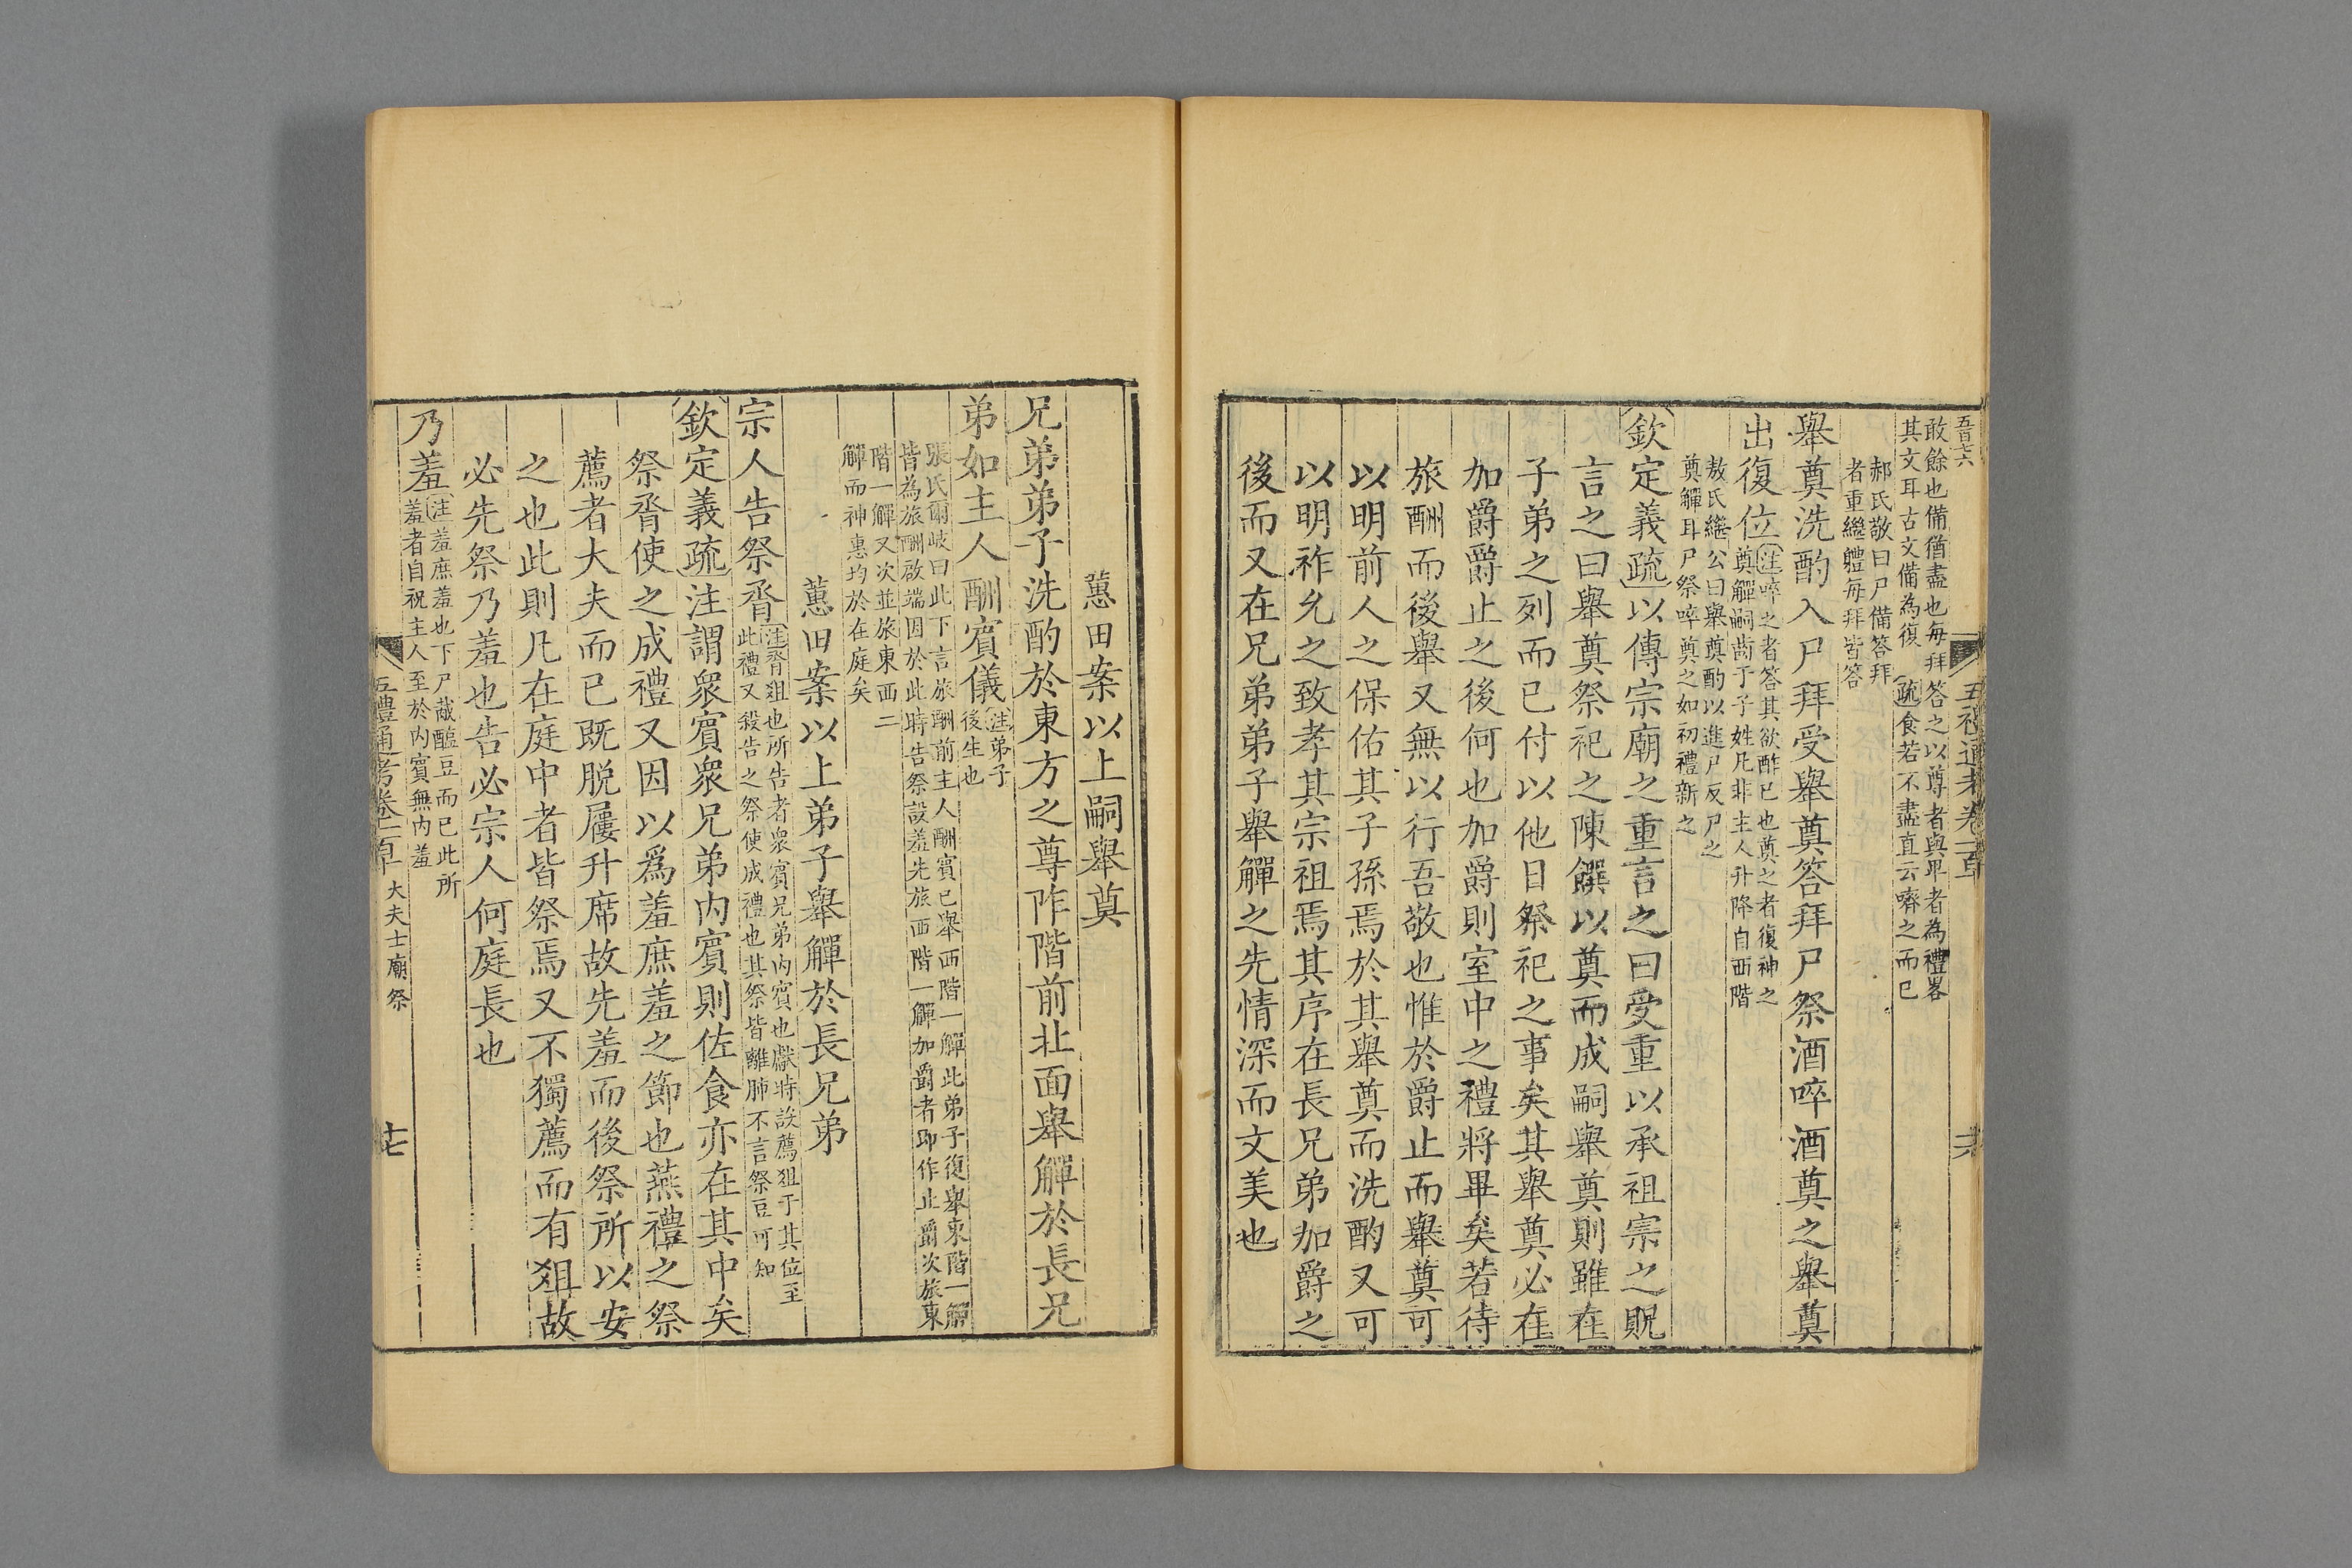 五禮通考卷一百
敢餘也備猶盡也每拜答之以尊者與卑者為禮畧
其文耳古文備為復疏食若不盡直云嚌之而已
郝氏敬曰尸備答拜
者重繼體每拜皆答
舉奠洗酌入尸拜受舉奠答拜尸祭酒啐酒奠之舉奠
出復位注啐之者答其欲酢已也奠之者復神之
奠觶嗣齒于子姓凡非主人升降自西階
敖氏繼公曰舉奠酌以進尸反尸之
奠觶耳尸祭啐奠之如初禮新之
欽定義疏以傳宗廟之重言之曰受重以承祖宗之貺
言之曰舉奠祭祀之陳饌以奠而成嗣舉奠則雖在
子弟之列而已付以他日祭祀之事矣其舉奠必在
加爵爵止之後何也加爵則室中之禮將畢矣若待
旅酬而後舉又無以行吾敬也惟於爵止而舉奠可
以明前人之保佑其子孫焉於其舉奠而洗酌又可
以明祚允之致孝其宗祖焉其序在長兄弟加爵之
後而又在兄弟弟子舉觶之先情深而文美也
蕙田案以上嗣舉奠
兄弟弟子洗酌於東方之尊阼階前北面舉觶於長兄
弟如主人酬賓儀注弟子
後生也
張氏爾岐曰此下言旅酬前主人酬賓已舉西階一觶此弟子復舉東階一觶
皆為旅酬啟端因於此時告祭設羞先旅西階一觶加爵者即作止爵次旅東
階一觶又次並旅東西二
觶而神惠均於在庭矣
蕙田案以上弟子舉觶於長兄弟
宗人告祭脀注脀俎也所告者衆賓兄弟內賓也獻時設薦俎于其位至
此禮又殺告之祭使成禮也其祭皆離肺不言祭豆可知
欽定義疏注謂衆賓衆兄弟内賓則佐食亦在其中矣
祭脀使之成禮又因以爲羞庶羞之節也燕禮之祭
薦者大夫而已既脱屨升席故先羞而後祭所以安
之也此則凡在庭中者皆祭焉又不獨薦而有俎故
必先祭乃羞也告必宗人何庭長也
乃羞注羞庶羞也下尸胾醢豆而已此所
羞者自祝主人至於内賓無内羞
五禮通考卷一百 大夫士廟祭
十七